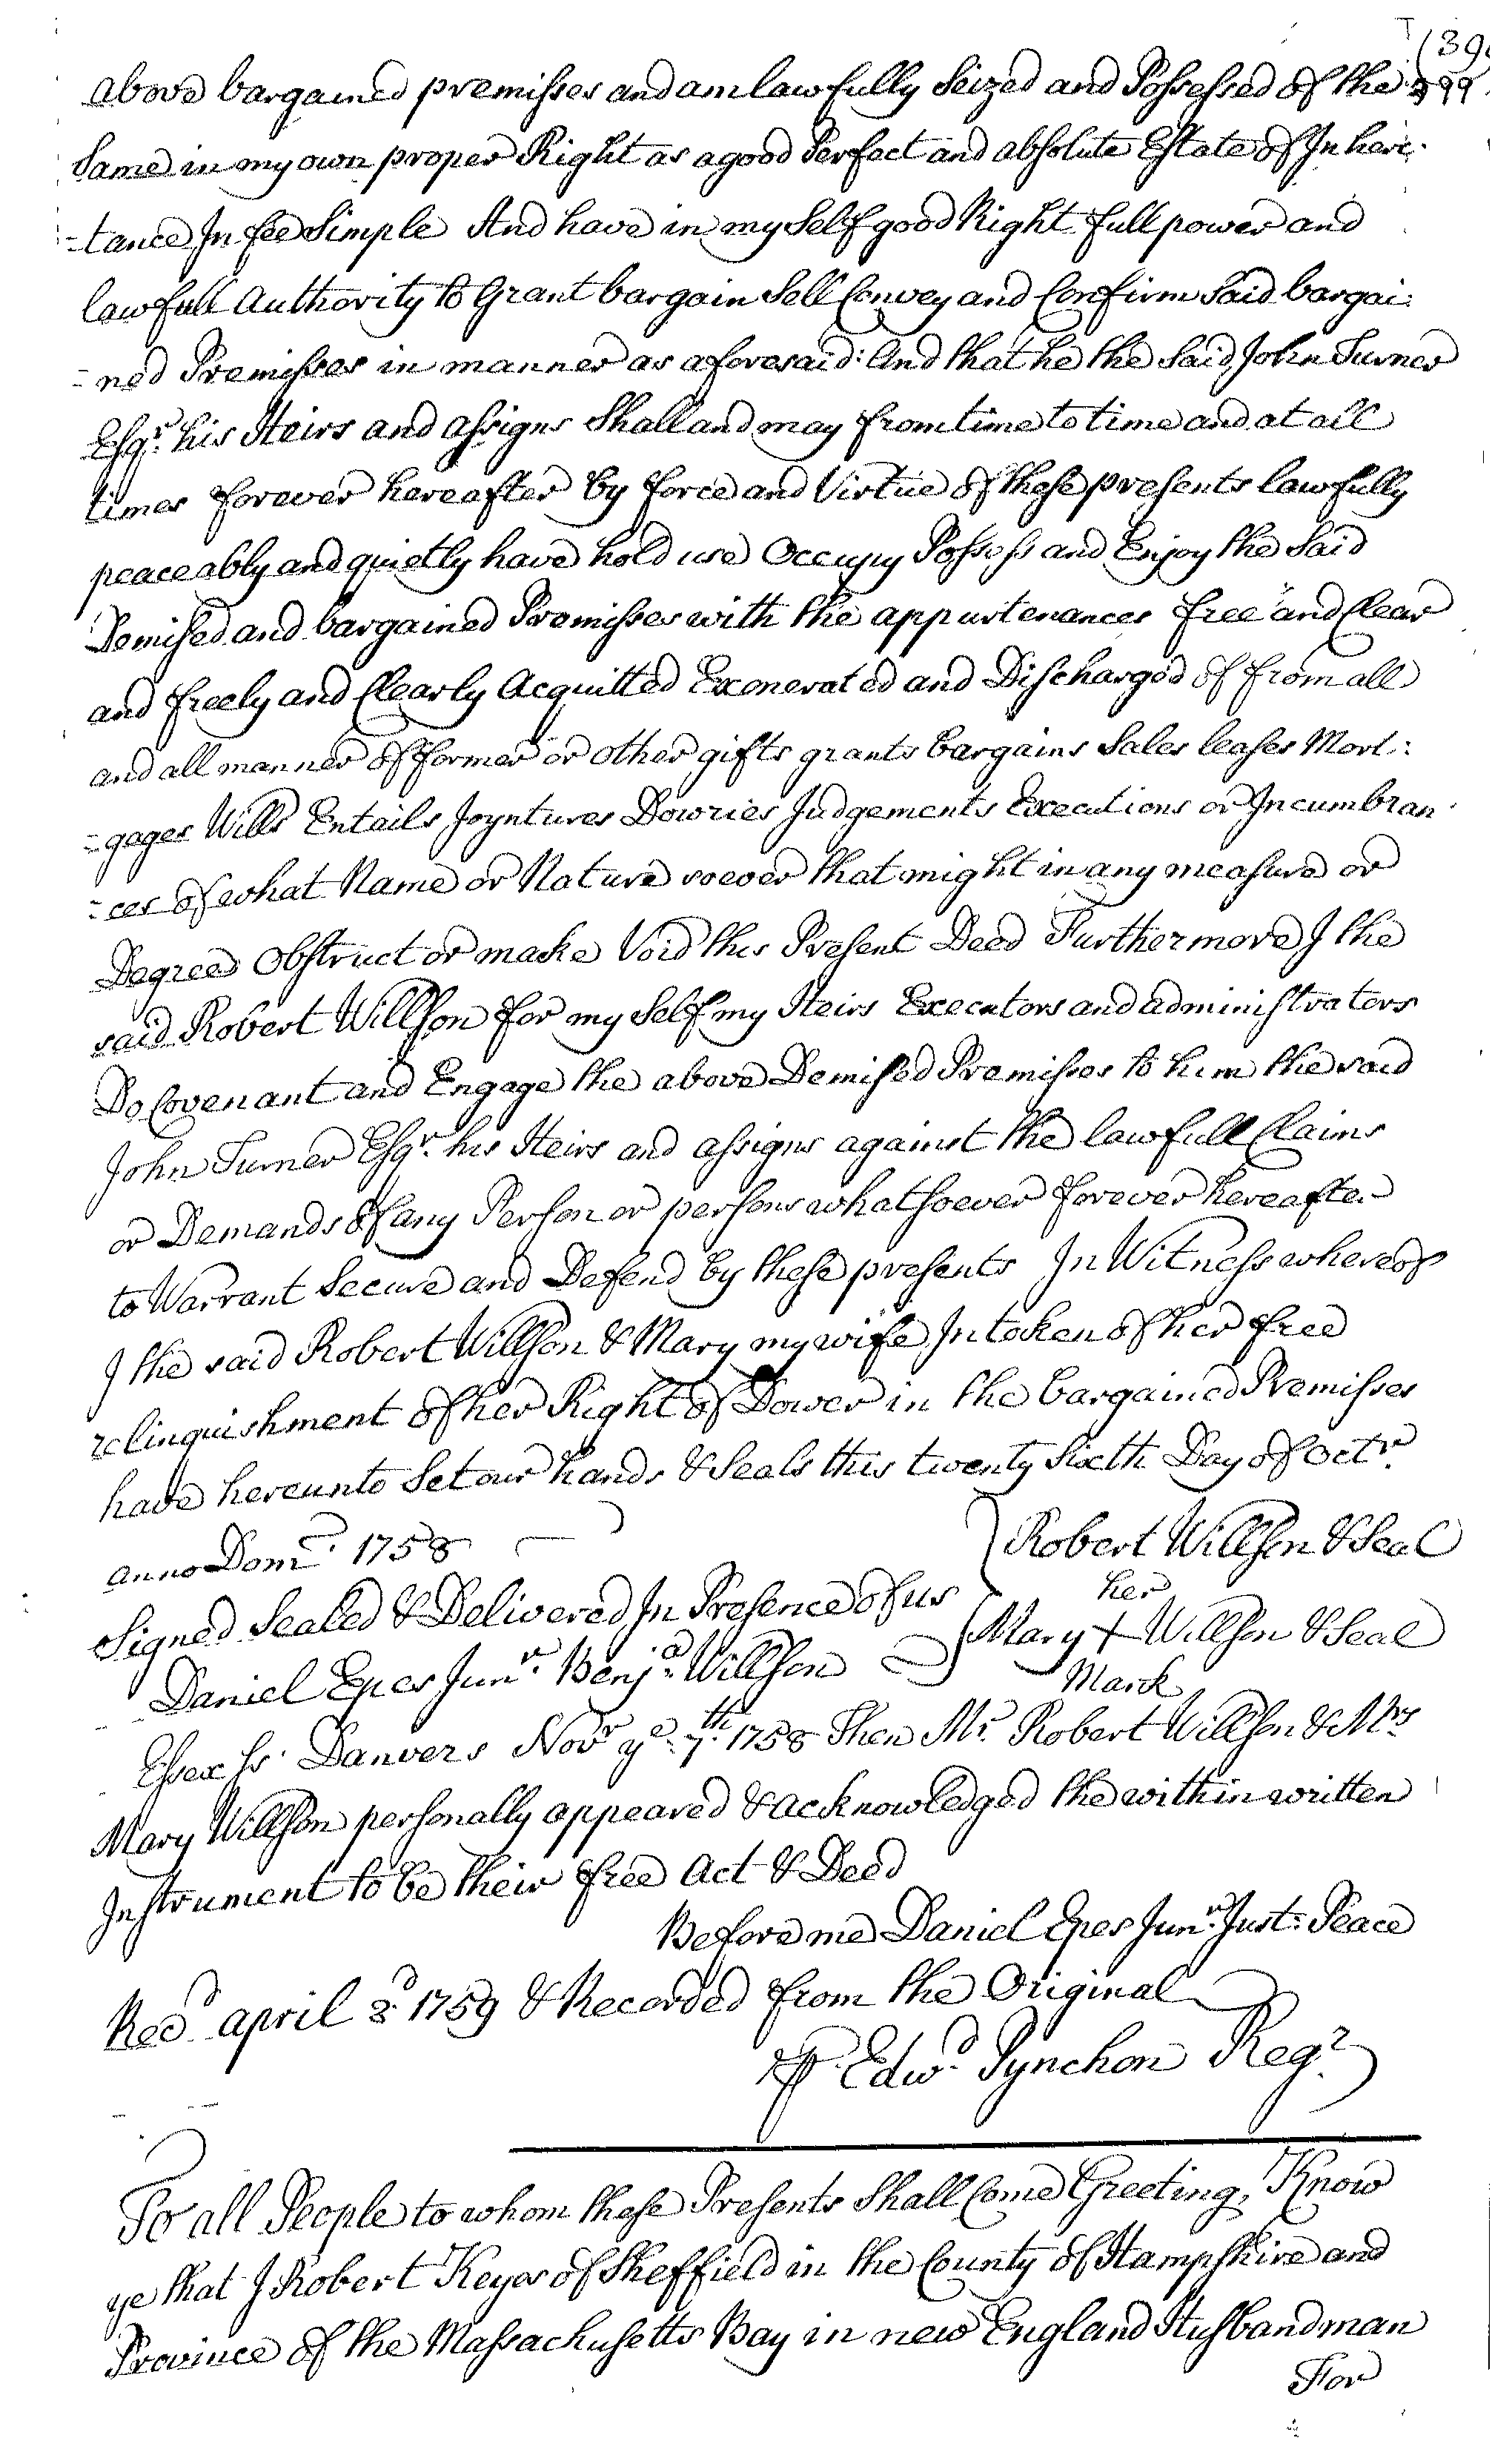 (39
above bargained premisses and am lawfully Seized and Possessed of the 399
Same in my own proper Right as a good Perfect and absolute Estate of Inheri:
=tance In fee Simple And have in my Self good Right full power and
lawfull Authority to Grant bargain Sell Convey and Confirm Said bargai:
=ned Premisses in manner as aforesaid: And that he the Said John Turner
Esqr. his Heirs and assigns Shall and may from time to time and at all
times forever hereafter by force and Virtue of these presents lawfully
peaceably and quietly have hold use Occupy Possess and Enjoy the Said
Demised and bargained Premisses with the appurtenances free and Clear
and freely and Clearly Acquitted Exonerated and Discharged of from all
and all manner of former or other gifts grants bargains Sales leases Mort:
=gages Wills Entails Joyntures Dowries Judgements Executions or Incumbran
=ces of what Name or Nature soever that might in any measure or
Degree Obstruct or make Void this Present Deed Furthermore I the
said Robert Willson for my Self my Heirs Executors and administrators
Do Covenant and Engage the above Demised Premisses to him the said
John Turner Esqr. his Heirs and assigns against the lawfull Claims
or Demands of any Person or persons whatsoever forever hereafter
to Warrant Secure and Defend by these presents In Witness whereof
I the said Robert Willson & Mary my wife In token of her free
relinquishment of her Right of Dower in the bargained Premisses
have hereunto Set our hands & Seals this twenty Sixth Day of Octr.
anno Dom: 1758
Robert Willson & Seal
Signed Sealed & Delivered In Presence of us
her
Mary + Willson & Seal
Mark
Daniel Epes Junr. Benja. Willson
Essex Ss. Danvers Novr. ye. 7th. 1758 Then Mr. Robert Willson & Mrs
Mary Willson personally appeared & acknowledged the within written
Instrument to be their free Act & Deed
Before me Daniel Epes Junr. Just: Peace
Recd. april 3d. 1759 & Recorded from the Original
P Edwd. Pynchon Regr.
To all People to whom these Presents Shall Come Greeting, Know
ye that I Robert Keyes of Sheffield in the County of Hampshire and
Province of the Massachusetts Bay in new England Husbandman
For